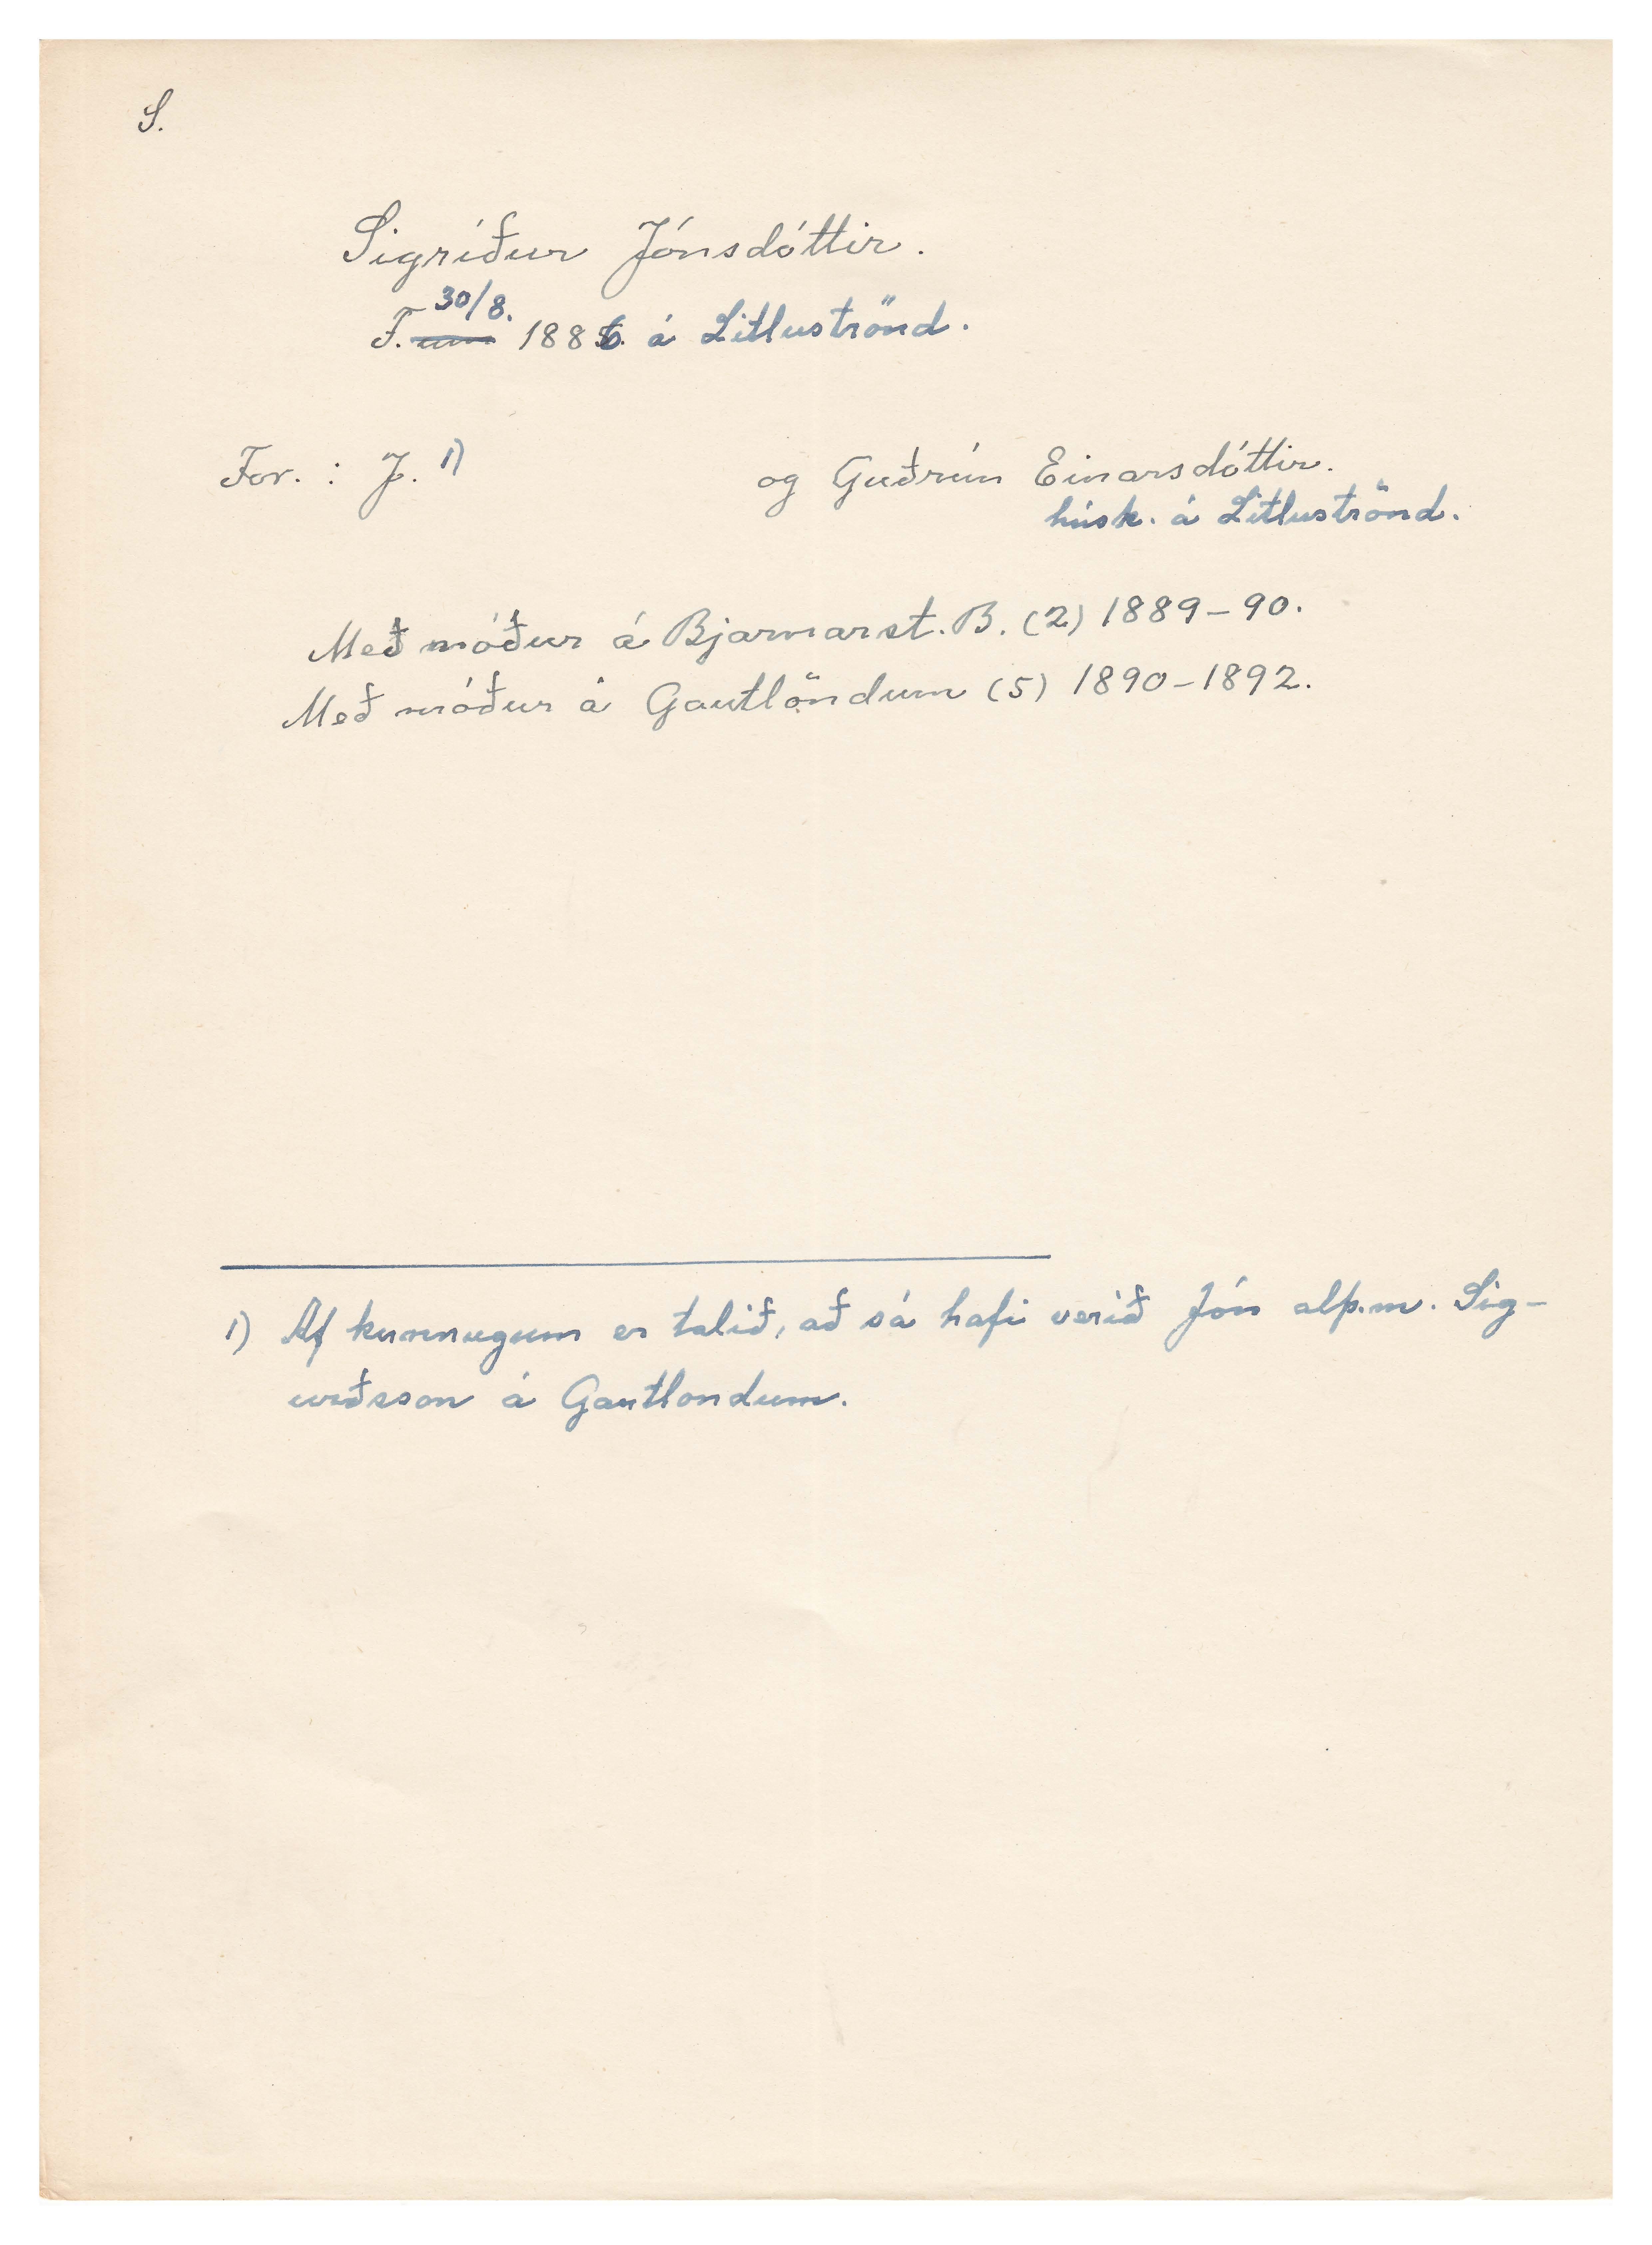 S.
Sigríður Jónsdóttir.
F. 30/8. 1886. á Litluströnd.
For. : J. 1) og Guðrún Einarsdóttir.
húsk. á Litluströnd.
Með móður á Bjarnarst. B. (2) 1889-90.
Með móður á Gautlöndum (5) 1890-1892.
1) Af kunnugum er talið, að sá hafi verið Jón alþ.m. Sig-
urðsson á Gautlondum.